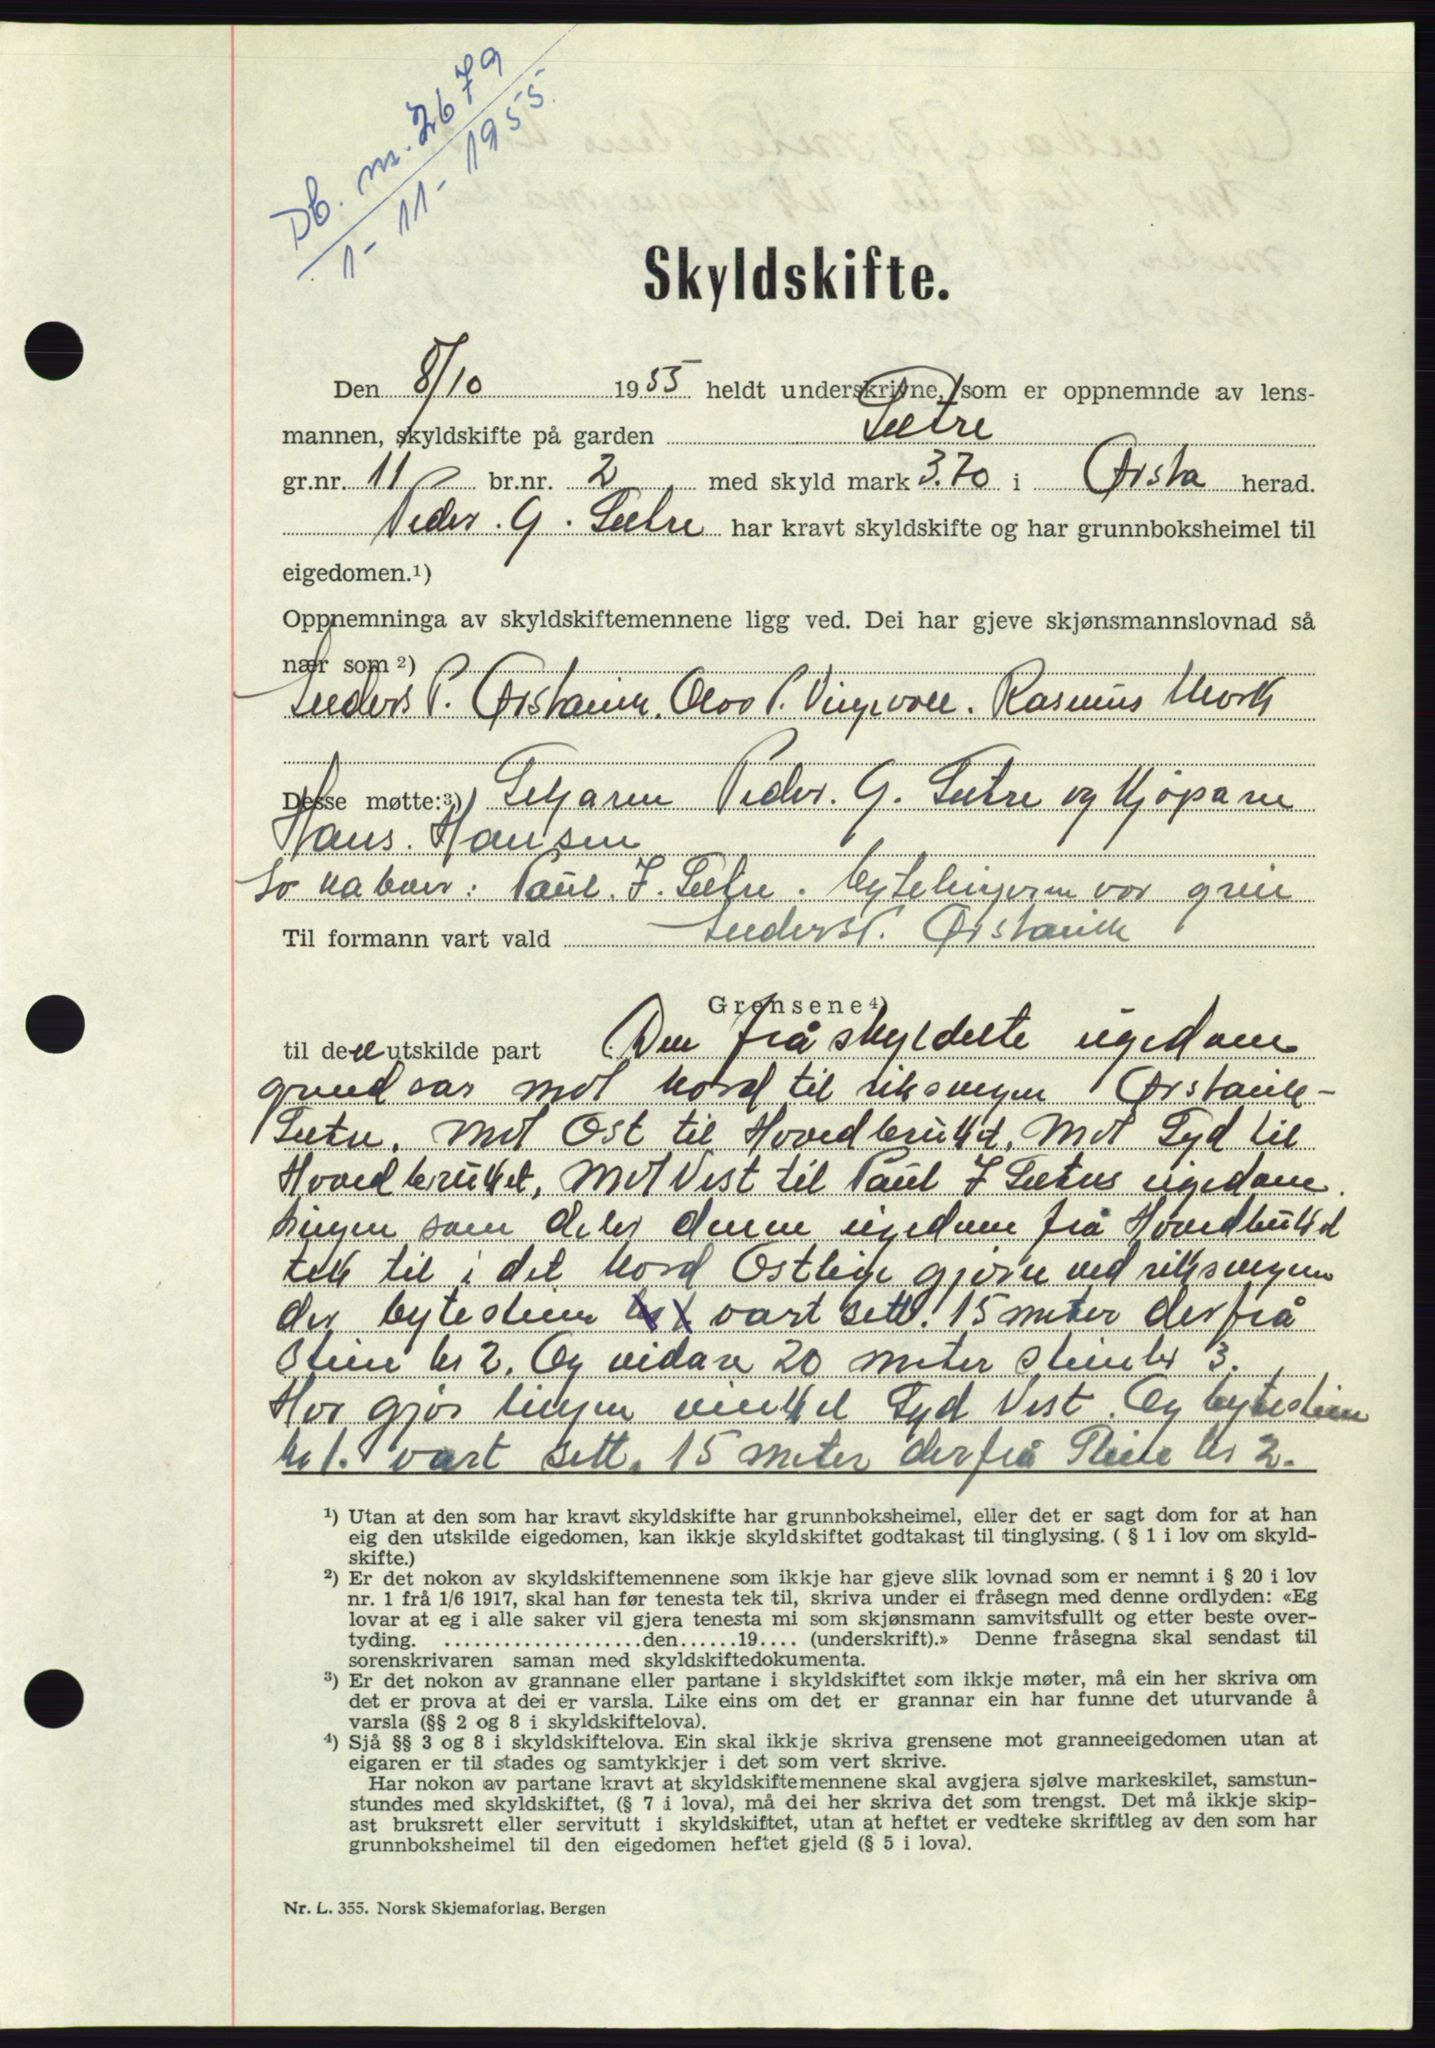 Db. nr. 2679
1-11-1955.
Skyldskifte.
Den 8/10 1955 heldt underskrivne, som er oppnemnde av lens-
mannen, skyldskifte på garden Sætre
gr.nr. 11 br.nr. 2 med skyld mark 3.70 i Ørsta herad.
Peder. G. Sætre har kravt skyldskifte og har grunnboksheimel til
eigedomen.¹)
Oppnemninga av skyldskiftemennene ligg ved. Dei har gjeve skjønsmannslovnad så
nær som ²)
Anders P. Ørstavik. Olav P. Vinjevoll. Rasmus Mork
Desse møtte:³) Seljaren Peder. G. Sætre og Kjøparen
Hans. Hansen
So naboar: Paul. J. Sætre. bytelingenn var grei
Til formann vart vald Anders P. Ørstavik
Grensene⁴)
til den utskilde part Den fråskyldelte eigedom
grensar mot Nord til riksvegen Ørstavik-
Sætre. Mot Ost til Hovedbruket. Mot Syd til
Hovedbruket, Mot Vest til Paul J Sætres eigedom.
Lingen som deler denne eigedom frå Hovedbruket
tek til i det Nord Ostlige gjørne ved riksvegen
der bytestein vart sett. 15 meter derfrå
Stein Nr 2. Og vidare 20 meter stein Nr 3.
Her gjør lingen vinkel Syd Vest. Og bytestein
Nr 1. vart sett. 15 meter derfrå Stein Nr 2.
¹) Utan at den som har kravt skyldskifte har grunnboksheimel, eller det er sagt dom for at han
eig den utskilde eigedomen, kan ikkje skyldskiftet godtakast til tinglysing. ( § 1 i lov om skyld-
skifte.)
²) Er det nokon av skyldskiftemennene som ikkje har gjeve slik lovnad som er nemnt i § 20 i lov
nr. 1 frå 1/6 1917, skal han før tenesta tek til, skriva under ei fråsegn med denne ordlyden: «Eg
lovar at eg i alle saker vil gjera tenesta mi som skjønsmann samvitsfullt og etter beste over-
tyding. ....................den......19.... (underskrift).» Denne fråsegna skal sendast til
sorenskrivaren saman med skyldskiftedokumenta.
³) Er det nokon av grannane eller partane i skyldskiftet som ikkje møter, må ein her skriva om
det er prova at dei er varsla. Like eins om det er grannar ein har funne det uturvande å
varsla (§§ 2 og 8 i skyldskiftelova).
⁴) Sjå §§ 3 og 8 i skyldskiftelova. Ein skal ikkje skriva grensene mot granneeigedomen utan at
eigaren er til stades og samtykkjer i det som vert skrive.
Har nokon av partane kravt at skyldskiftemennene skal avgjera sjølve markeskilet, samstun-
stundes med skyldskiftet, (§ 7 i lova), må dei her skriva det som trengst. Det må ikkje skip-
ast bruksrett eller servitutt i skyldskiftet, utan at heftet er vedteke skriftleg av den som har
grunnboksheimel til den eigedomen heftet gjeld (§ 5 i lova).
Nr. L. 355. Norsk Skjemaforlag, Bergen